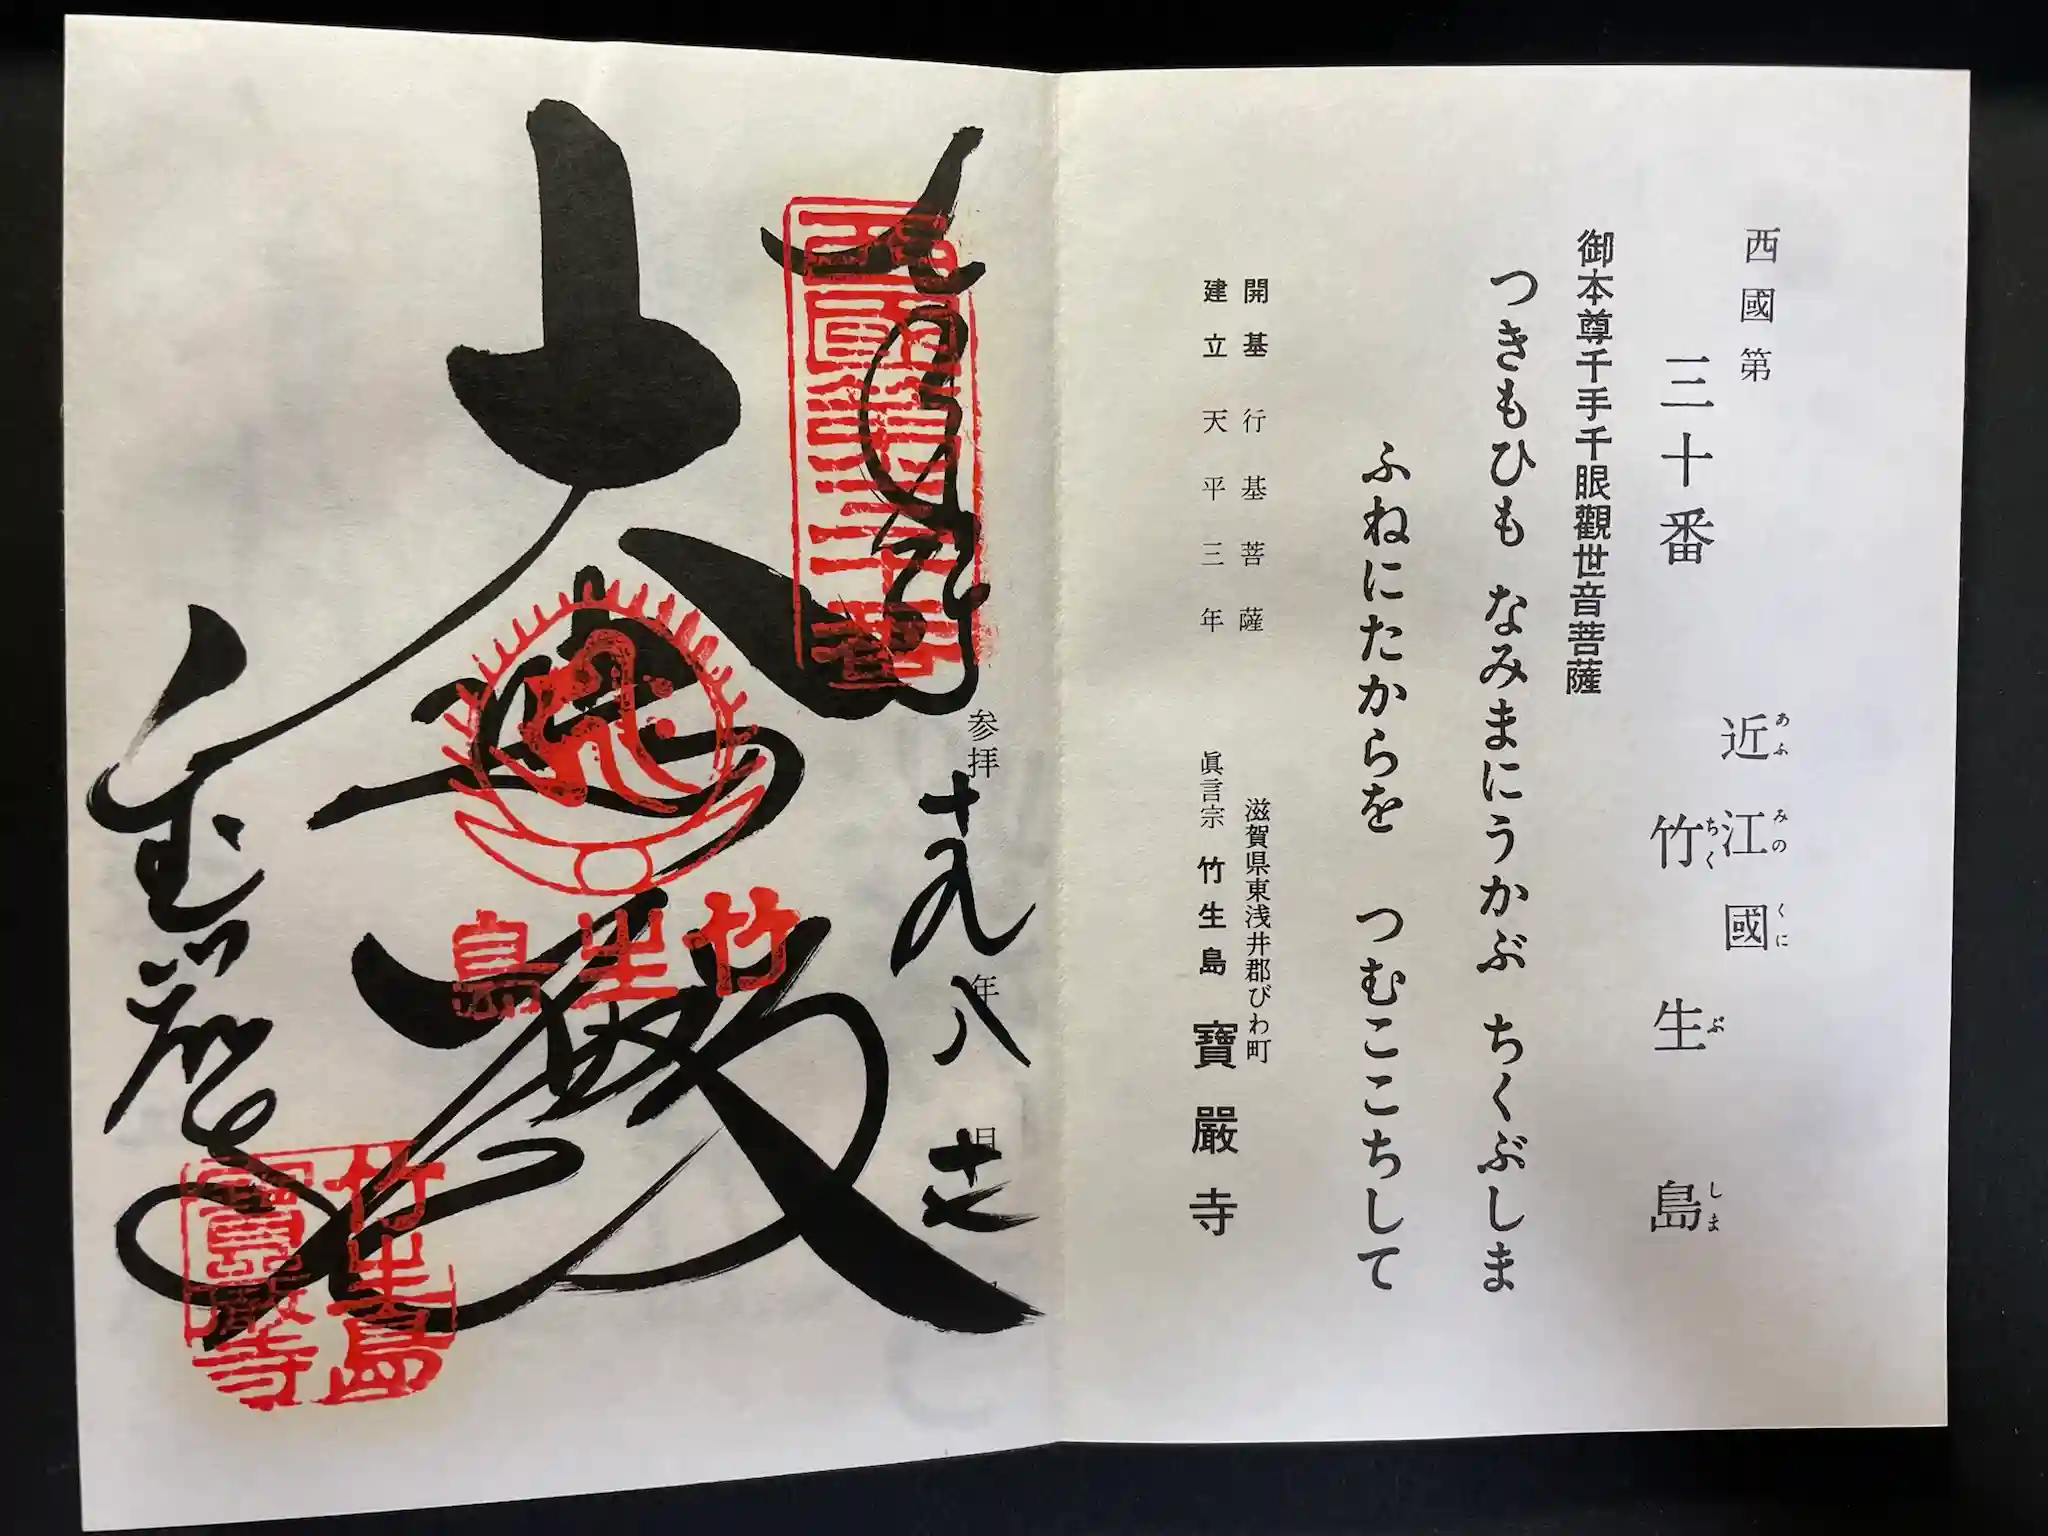 西國第
三十番
近江國
あふみのくに
竹生島
ちくぶしま
御本尊千手千眼觀世音菩薩
つきもひも なみまにうかぶ ちくぶしま
ふねにたからを つむここちして
開基 行基菩薩
建立 天平三年
滋賀県東浅井郡びわ町
眞言宗 竹生島 寶嚴寺
参拝
十九年八月十七
奉拝
西國第三十番
大悲殿
竹生島
寳嚴寺
竹生島
寳嚴寺